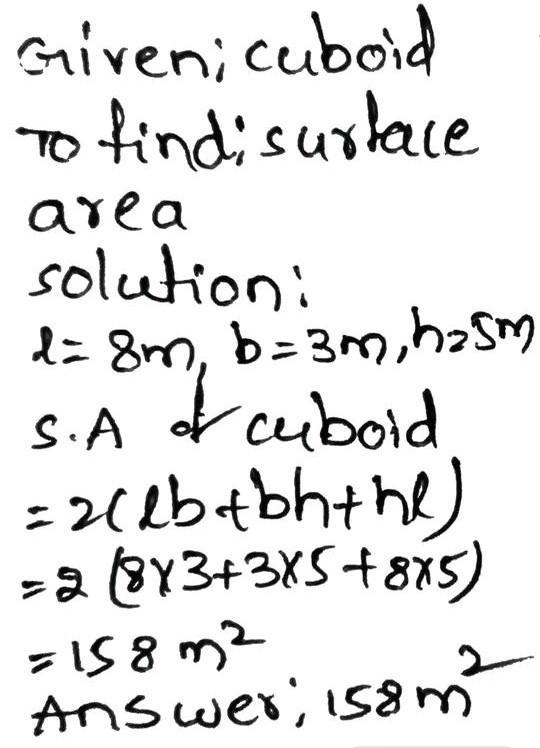 Given; cuboid
To find; surface
area
solution:
l = 8m, b = 3m, h = 5m
S.A of cuboid
= 2(lb + bh + hl)
= 2 (8×3+3×5+8×5)
= 158 m²
Answer; 158 m²